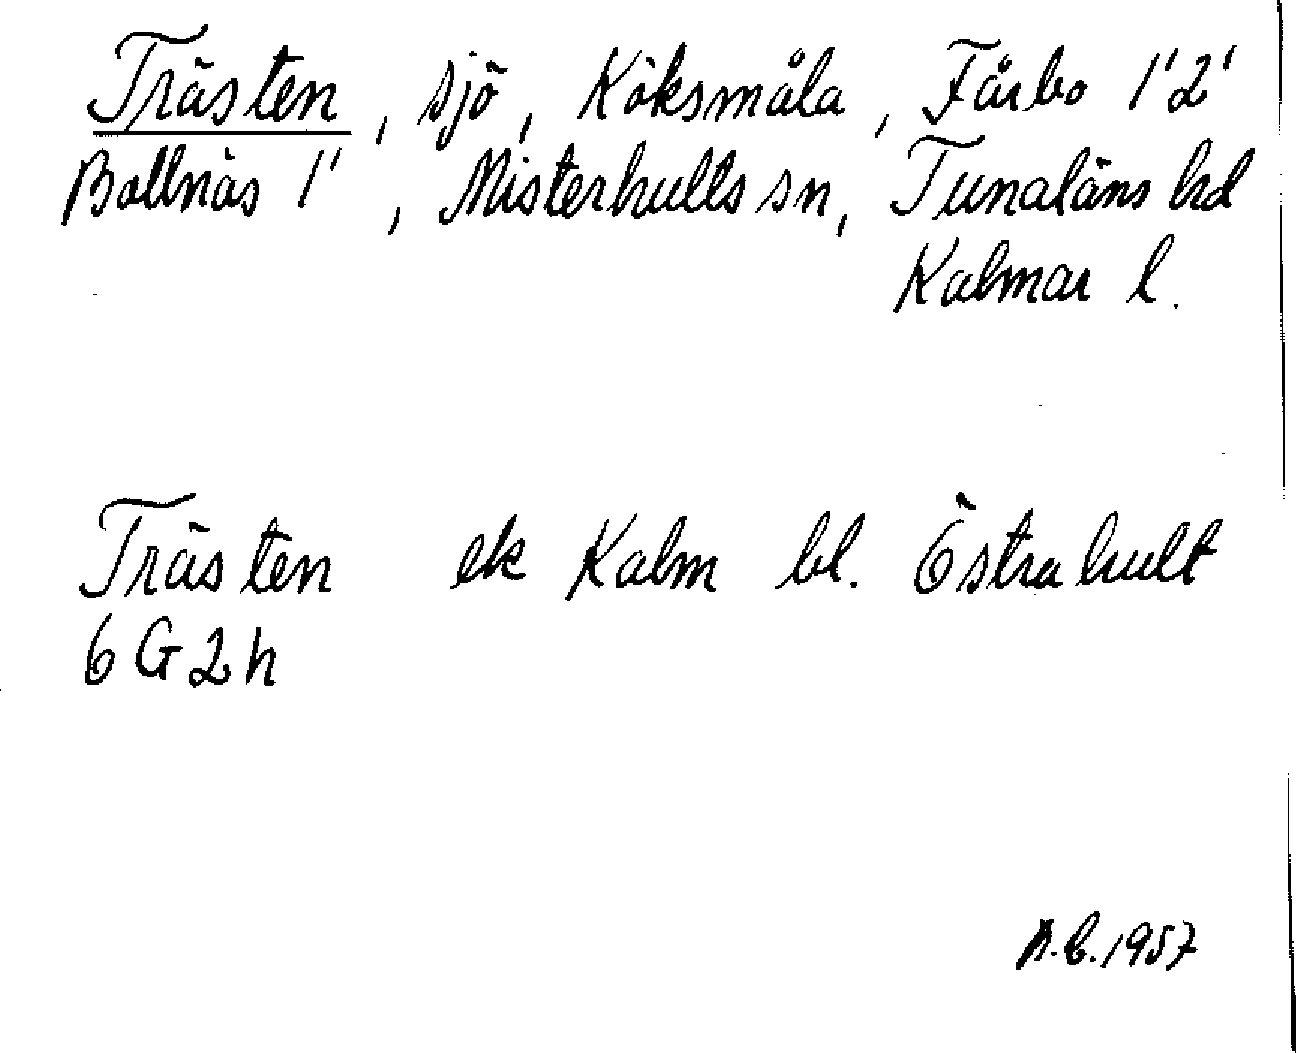 Trästen, sjö, Köksmåla, Fårbo 1'2'
Bollnäs 1', Misterhults sn, Tunaläns hd
Kalmar l.
Trästen ek Kalm bl. Östrahult
6G2h
A.B.1957